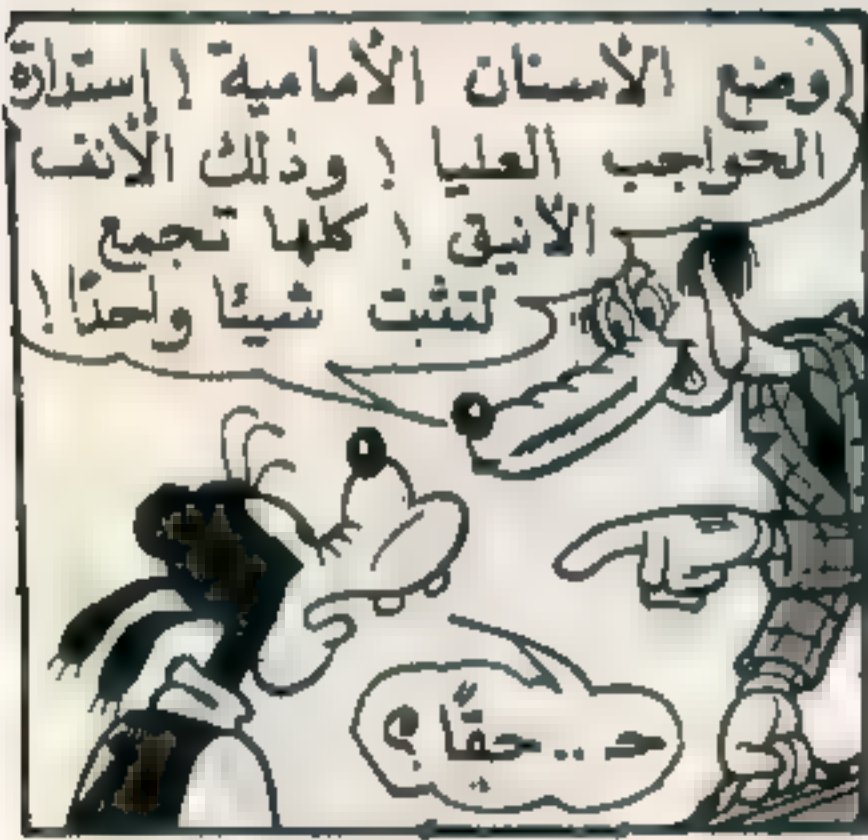 وضع الأسنان الأمامية ! إستدارة
الحواجب العليا ! وذلك الأنف
الأنيق ! كلها تجمع
لتثبت شيئا واحدًا !
حـ .. حقًّا ؟